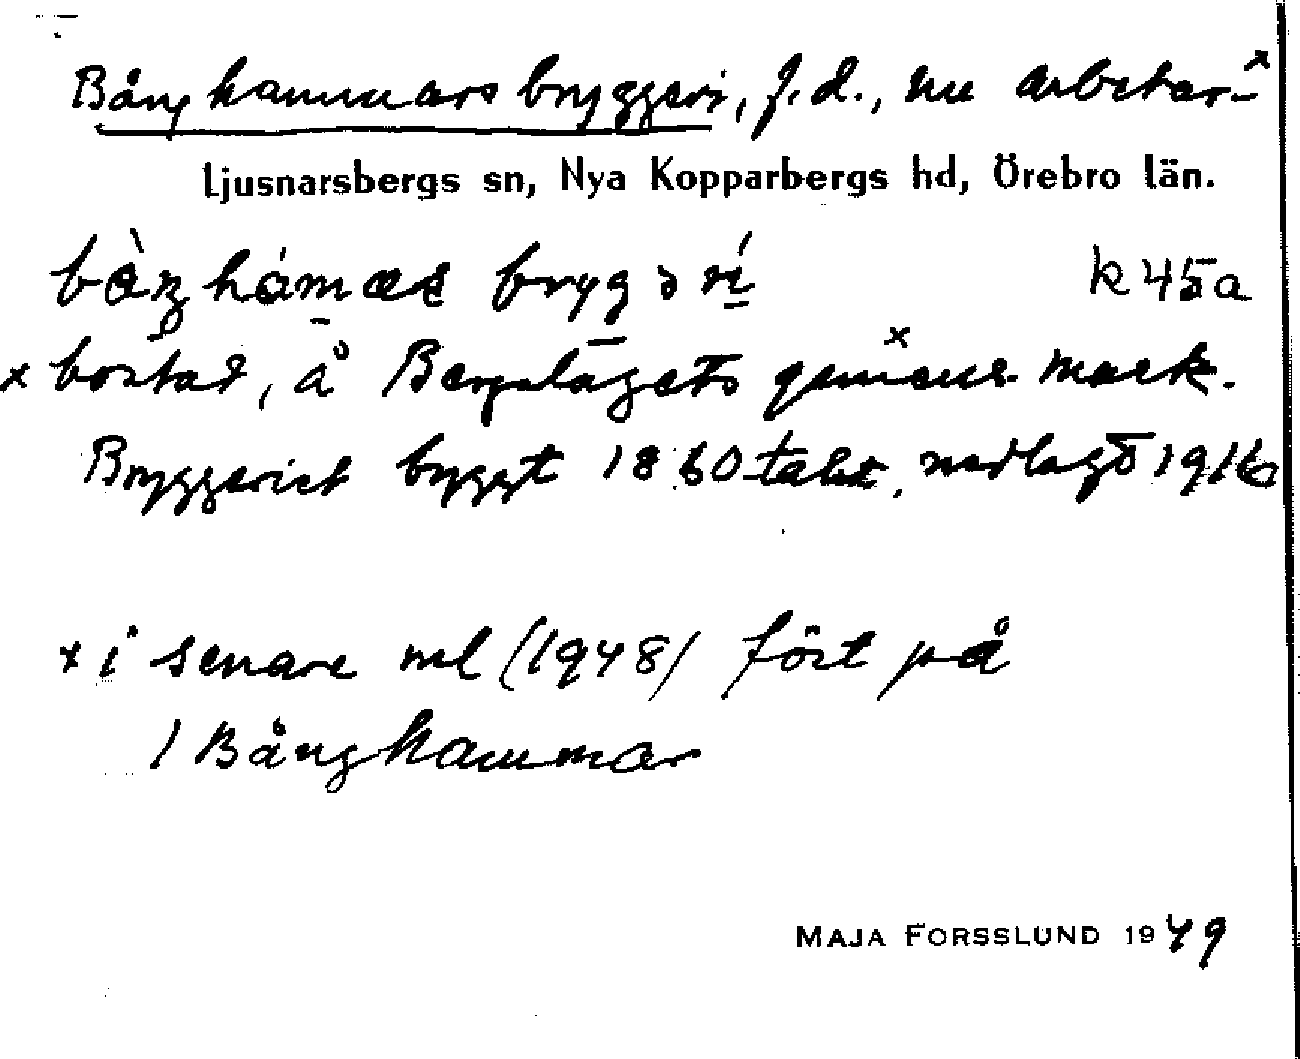 Bånghammars bryggeri, f.d., nu arbetar-x
Ljusnarsbergs sn, Nya Kopparbergs hd, Örebro län.
k 45a
x bostad, å Bergslagets x mark.
Bryggeriet byggt 1860-talet, nedlagt 1916
x i senare ml (1948) fört på
/ Bånghammar
MAJA FORSSLUND 1949